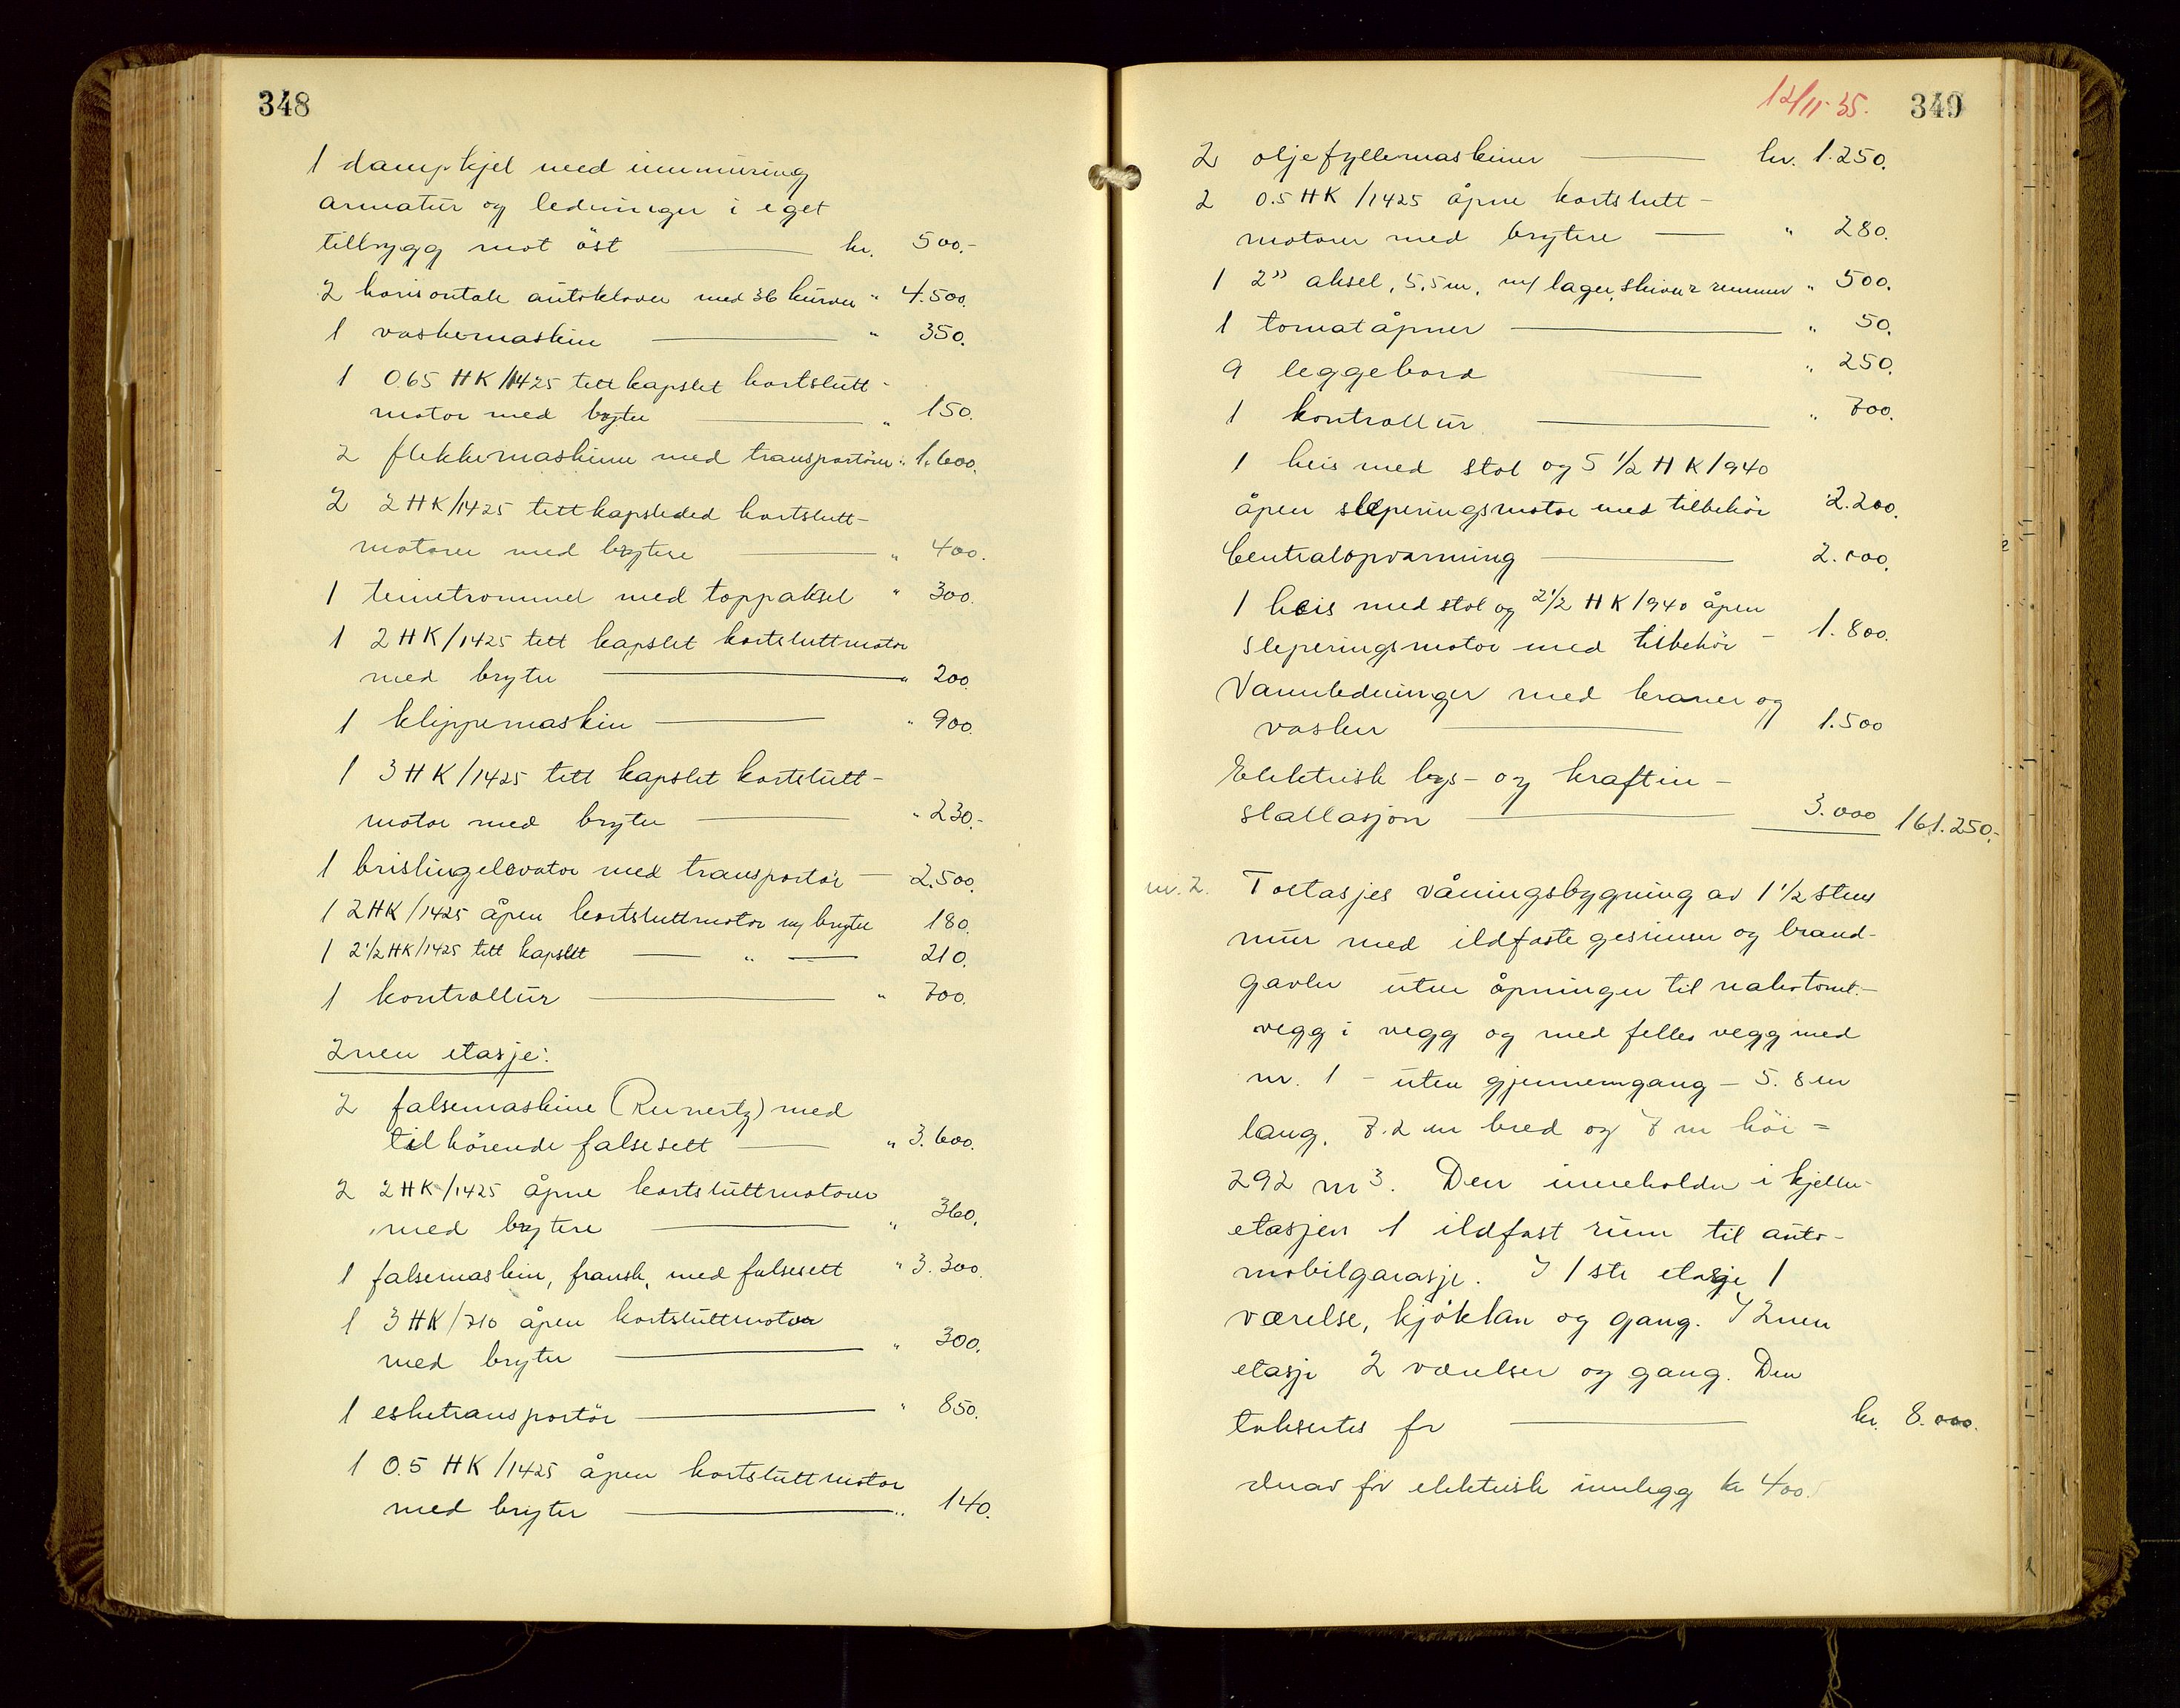 348
1 dampkjel med innmuring
armatur og ledninger i eget
tilbygg mot öst kr. 500.-
2 horisontale autoklaver med 36 kurver " 4.500.
1 vaskemaskin " 350.
1 0.65 HK/1425 tett kapslet kortslutt-
motor med bryter " 150.
2 flekkemaskiner med transportörer " 1.600.
2 2 HK/1425 tett kapsleded kortslutt-
motorer med brytere " 400.
1 teinetrommel med toppaksel " 300.
1 2 HK/1425 tett kapslet kortsluttmotor
med bryter " 200.
1 klippemaskin " 900.
1 3 HK/1425 tett kapslet kortslutt-
motor med bryter " 230.-
1 brislingelevator med transportör 2.500.
1 2 HK/1425 åpen kortsluttmotor m/ bryter 180.
1 2 1/2 HK/1425 tett kapslet " 210.
1 kontrollur " 700.
2nen etasje:
2 falsemaskine (Runertz) med
tilhörende falsesett " 3.600.
2 2 HK/1425 åpne kortsluttmotorer
med brytere " 360.
1 falsemaskin, fransk, med falsesett " 3.300.
1 3 HK/710 åpen kortsluttmotor
med bryter " 300.
1 esketransportör " 850.
1 0.5 HK/1425 åpen kortsluttmotor
med bryter " 140.
12/11-35. 349
2 oljefyllemaskiner kr. 1.250.
2 0.5 HK/1425 åpne kortslutt-
motorer med brytere " 280.
1 2" aksel, 5,5 m, m/ lager, skiver & remmer " 500.
1 tomatåpner " 50.
9 leggebord " 250.
1 kontrollur " 700.
1 heis med stol og 5 1/2 HK/940
åpen sleperingsmotor med tilbehör 2.200.
Centralopvarming 2.000.
1 heis med stol og 2 1/2 HK/940 åpen
sleperingsmotor med tilbehör - 1.800.
Vannledninger med kraner og
vasker 1.500
Elektrisk lys- og kraftin-
stallasjon 3.000 161.250.-
nr. 2. Toetasjes våningsbygning av 1 1/2 stens
mur med ildfaste gesimser og brand-
gavler uten åpninger til nabotomt.-
vegg i vegg og med felles vegg med
nr. 1 - uten gjennemgang - 5.8 m
lang, 7.2 m bred og 7 m höi =
292 m3. Den inneholder i kjeller-
etasjen 1 ildfast rum til auto-
mobilgarasje. I 1ste etasje 1
værelse, kjökken og gang. I 2nen
etasje 2 værelser og gang. Den
takseres for kr. 8.000.
derav for elektrisk innlegg kr 400.